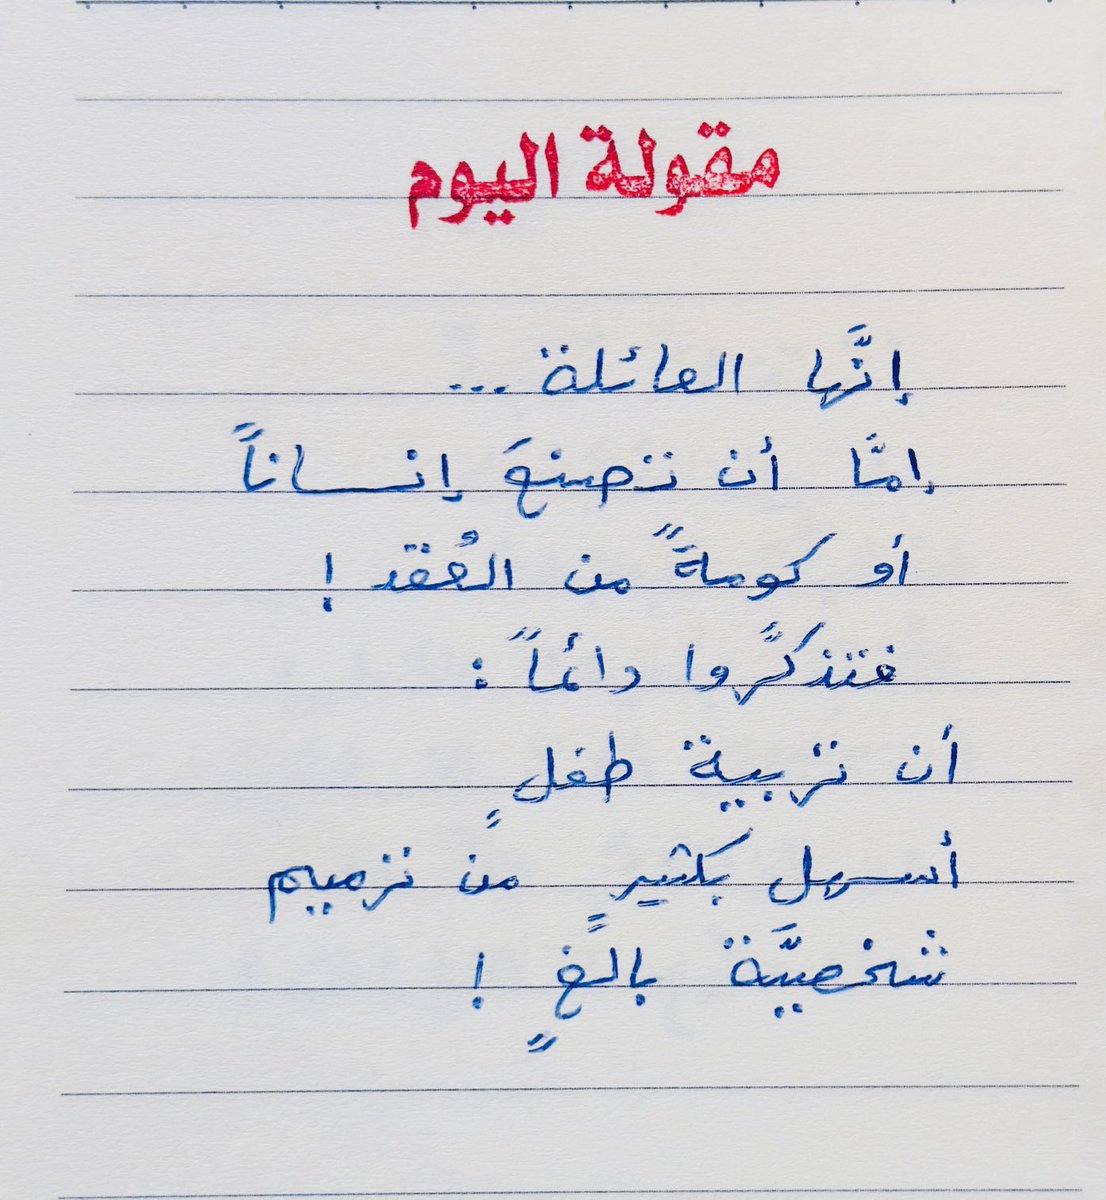 مقولة اليوم
إنَّها العائلة ...
إمَّا أن تصنعَ إنساناً
أو كومةً من العُقد !
فتذكَّروا دائماً :
أن تربية طفلٍ
أسهل بكثيرٍ من ترميم
شخصيَّة بالغٍ !